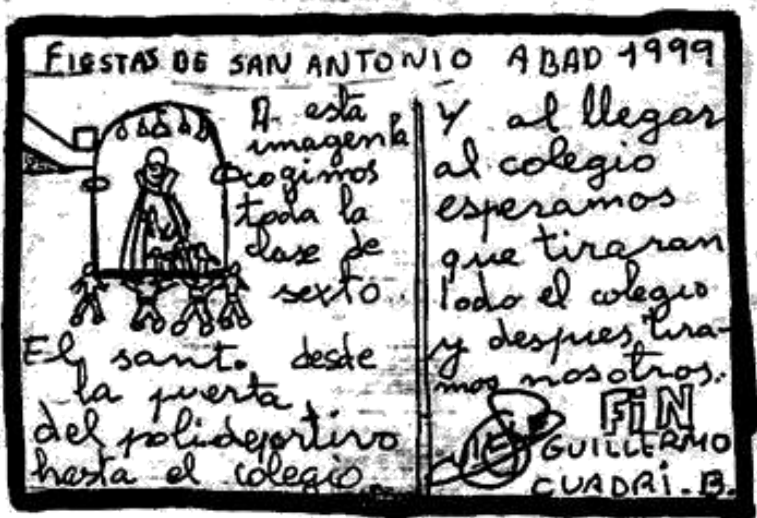 FIESTAS DE SAN ANTONIO ABAD 1999
A esta
imagen la
cogimos
toda la
clase de
sexto.
El sant. desde
la puerta
del polideportivo
hasta el colegio.
Y al llegar
al colegio
esperamos
que tiraran
todo el colegio
y despues tira-
mos nosotros.
FiN
GUILLERMO
CUADRi. B.